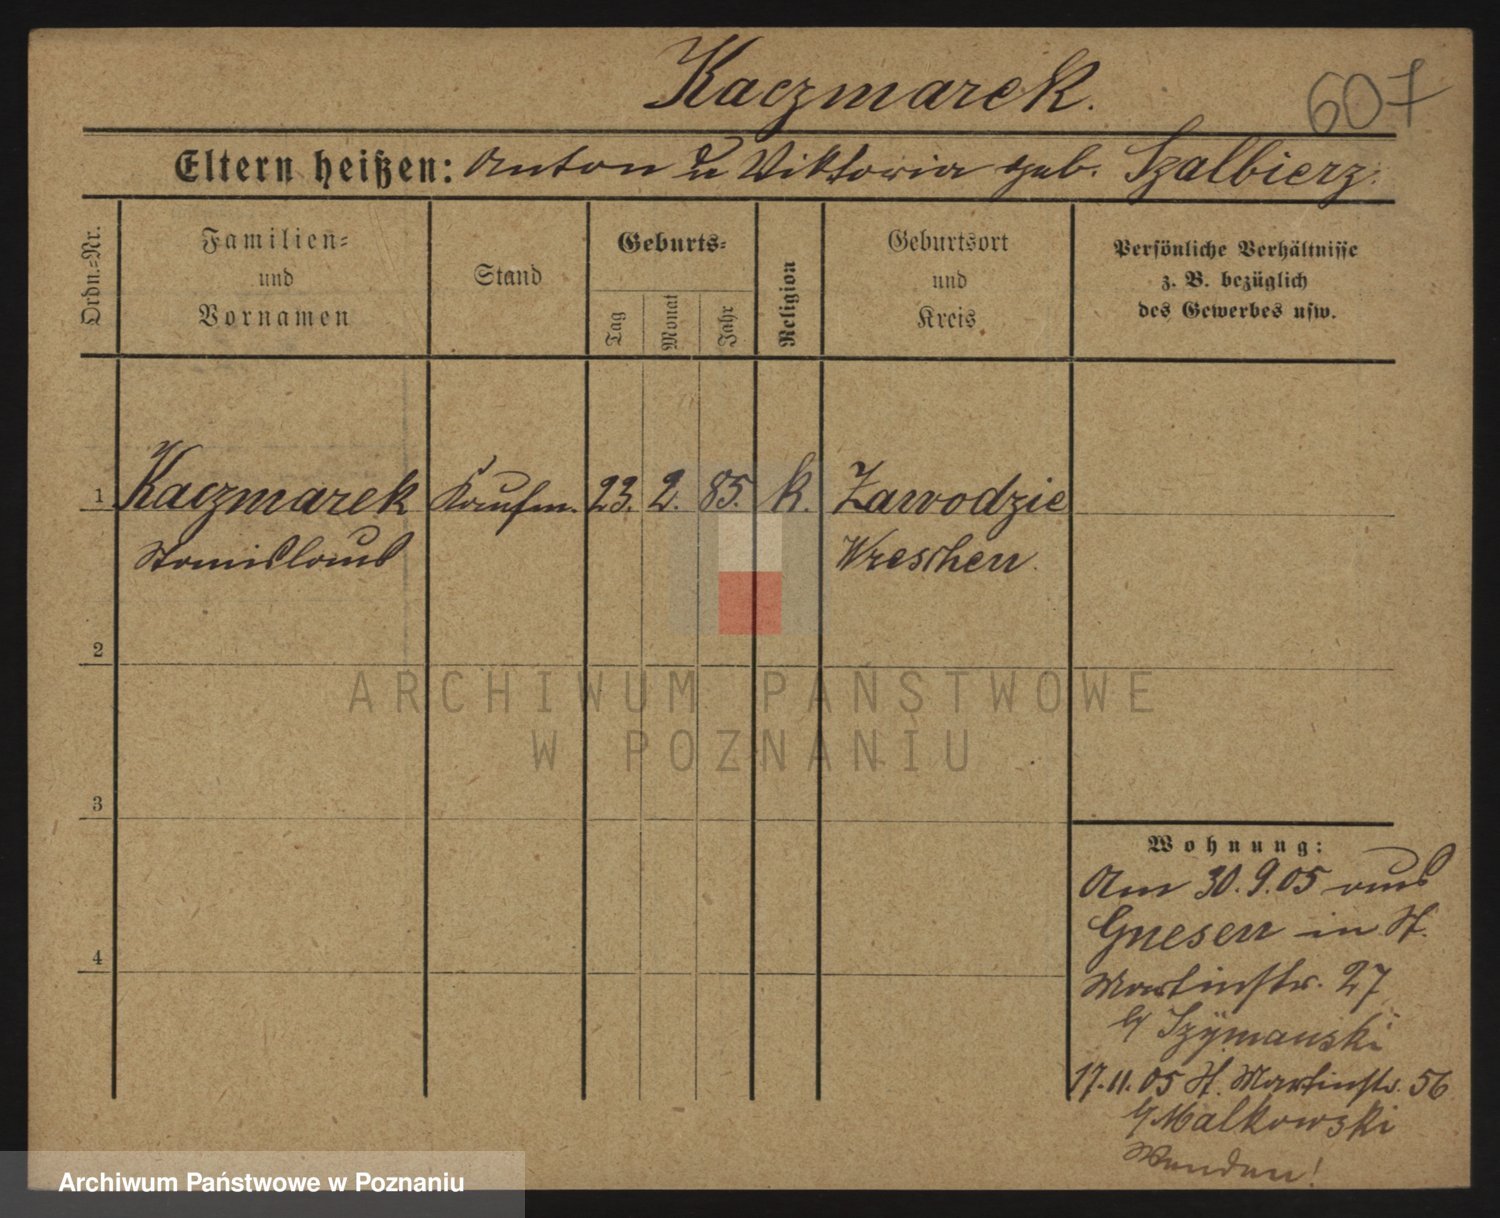 Kaczmarek.
607
Eltern heißen: Anton u Viktoria geb. Szalbierz.
Ordn.-Nr.
Familien-
und
Vornamen
Stand
Geburts-
Tag
Monat
Jahr
Religion
Geburtsort
und
Kreis
Persönliche Verhältnisse
z. B. bezüglich
des Gewerbes usw.
1 Kaczmarek Kaufm. 23. 2. 85. k. Zawodzie
Stanislaus Wreschen.
2
ARCHIWUM PAŃSTWOWE
W POZNANIU
3
Wohnung:
Am 30.9.05 aus
Gnesen in St.
4
Martinstr. 27
b/ Szymanski
17.11.05 St. Martinstr. 56
b/ Malkowski
Wenden!
Archiwum Państwowe w Poznaniu